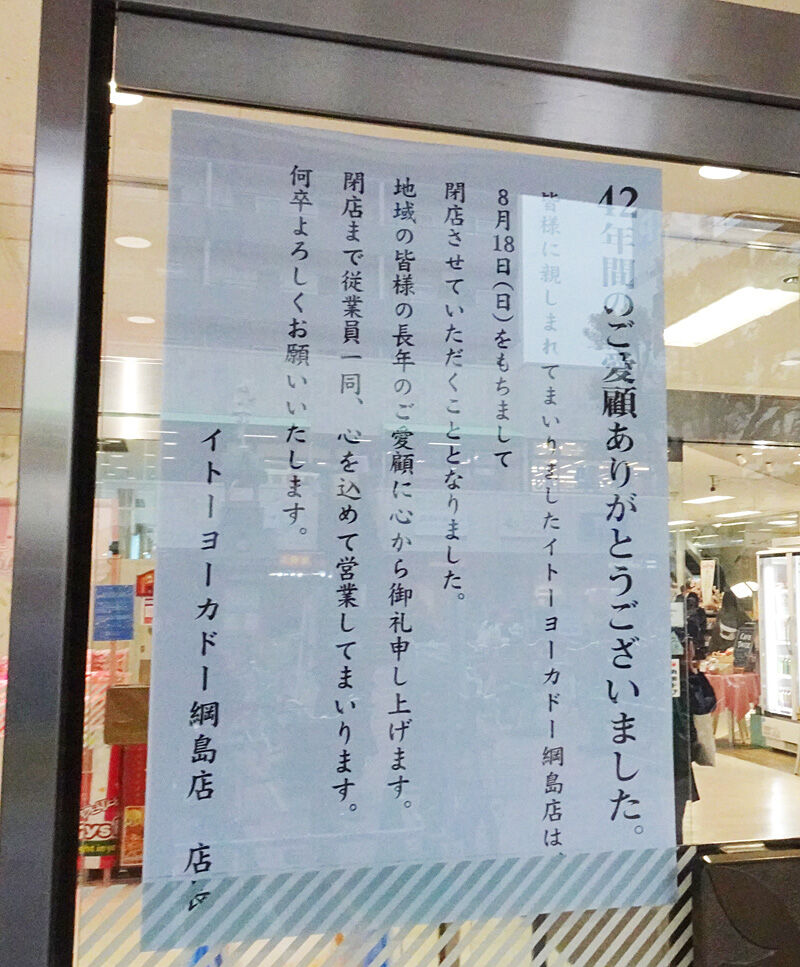 42年間のご愛顧ありがとうございました。
皆様に親しまれてまいりましたイトーヨーカドー綱島店は、
8月18日(日)をもちまして
閉店させていただくこととなりました。
地域の皆様の長年のご愛顧に心から御礼申し上げます。
閉店まで従業員一同、心を込めて営業してまいります。
何卒よろしくお願いいたします。
イトーヨーカドー綱島店 店長